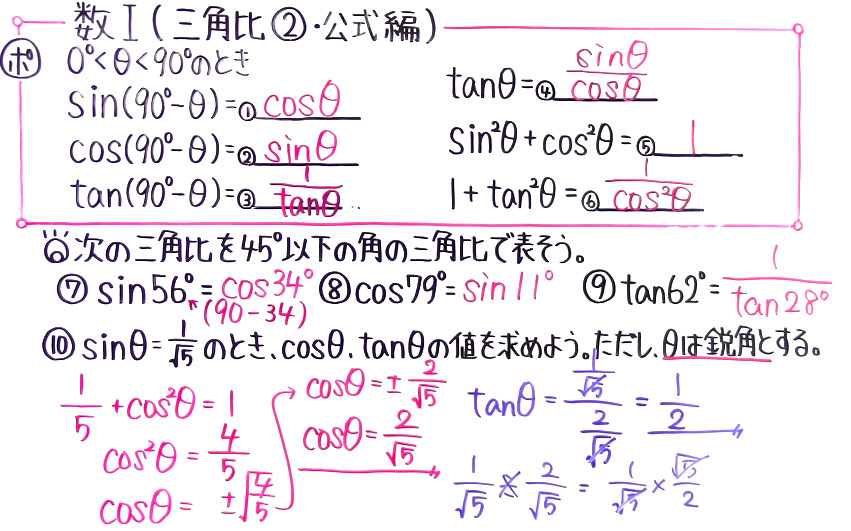 数Ⅰ(三角比②・公式編)
ポ 0°<θ<90°のとき
sin(90°-θ)=①cosθ
cos(90°-θ)=②sinθ
tan(90°-θ)=③1/tanθ
tanθ=④sinθ/cosθ
sin²θ+cos²θ=⑤1
1+tan²θ=⑥1/cos²θ
次の三角比を45°以下の角の三角比で表そう。
⑦sin56°=cos34° ⑧cos79°=sin11° ⑨tan62°=1/tan28°
(90-34)
⑩sinθ=1/√5のとき、cosθ、tanθの値を求めよう。ただし、θは鋭角とする。
1/5+cos²θ=1
cos²θ=4/5
cosθ=±√4/5
cosθ=±2/√5
cosθ=2/√5
tanθ=(1/√5)/(2/√5)=1/2
1/√5÷2/√5=1/√5×√5/2